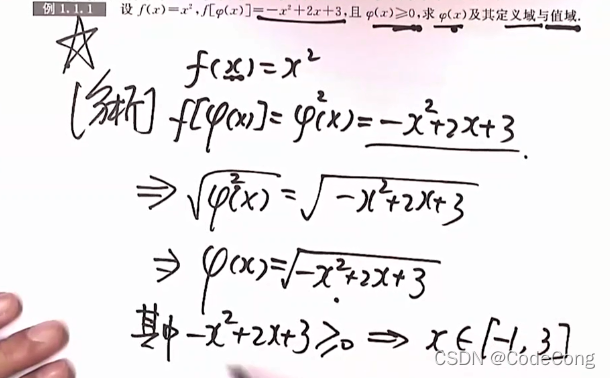 例 1.1.1 设 f(x)=x²,f[φ(x)]=-x²+2x+3,且 φ(x)≥0,求 φ(x)及其定义域与值域.
f(x)=x²
[分析] f[φ(x)]=φ²(x)=-x²+2x+3.
⇒√φ²(x)=√-x²+2x+3
⇒ φ(x)=√-x²+2x+3
其中-x²+2x+3≥0 ⇒ x∈[-1,3]
CSDN @CodeCong